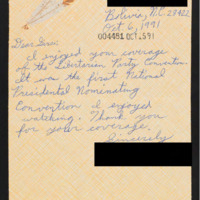 Bolivia, N.C. 28422
Oct 6, 1991
004451 OCT 1591
Dear Sirs:
I enjoyed your coverage
of the Libertarian Party Convention.
It was the first National
Presidential Nominating
Convention I enjoyed
watching. Thank you
for your coverage.
Sincerely